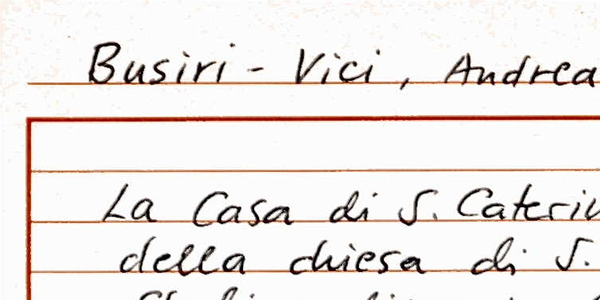 Busiri - Vici, Andrea
La Casa di S. Caterin
della chiesa di S.